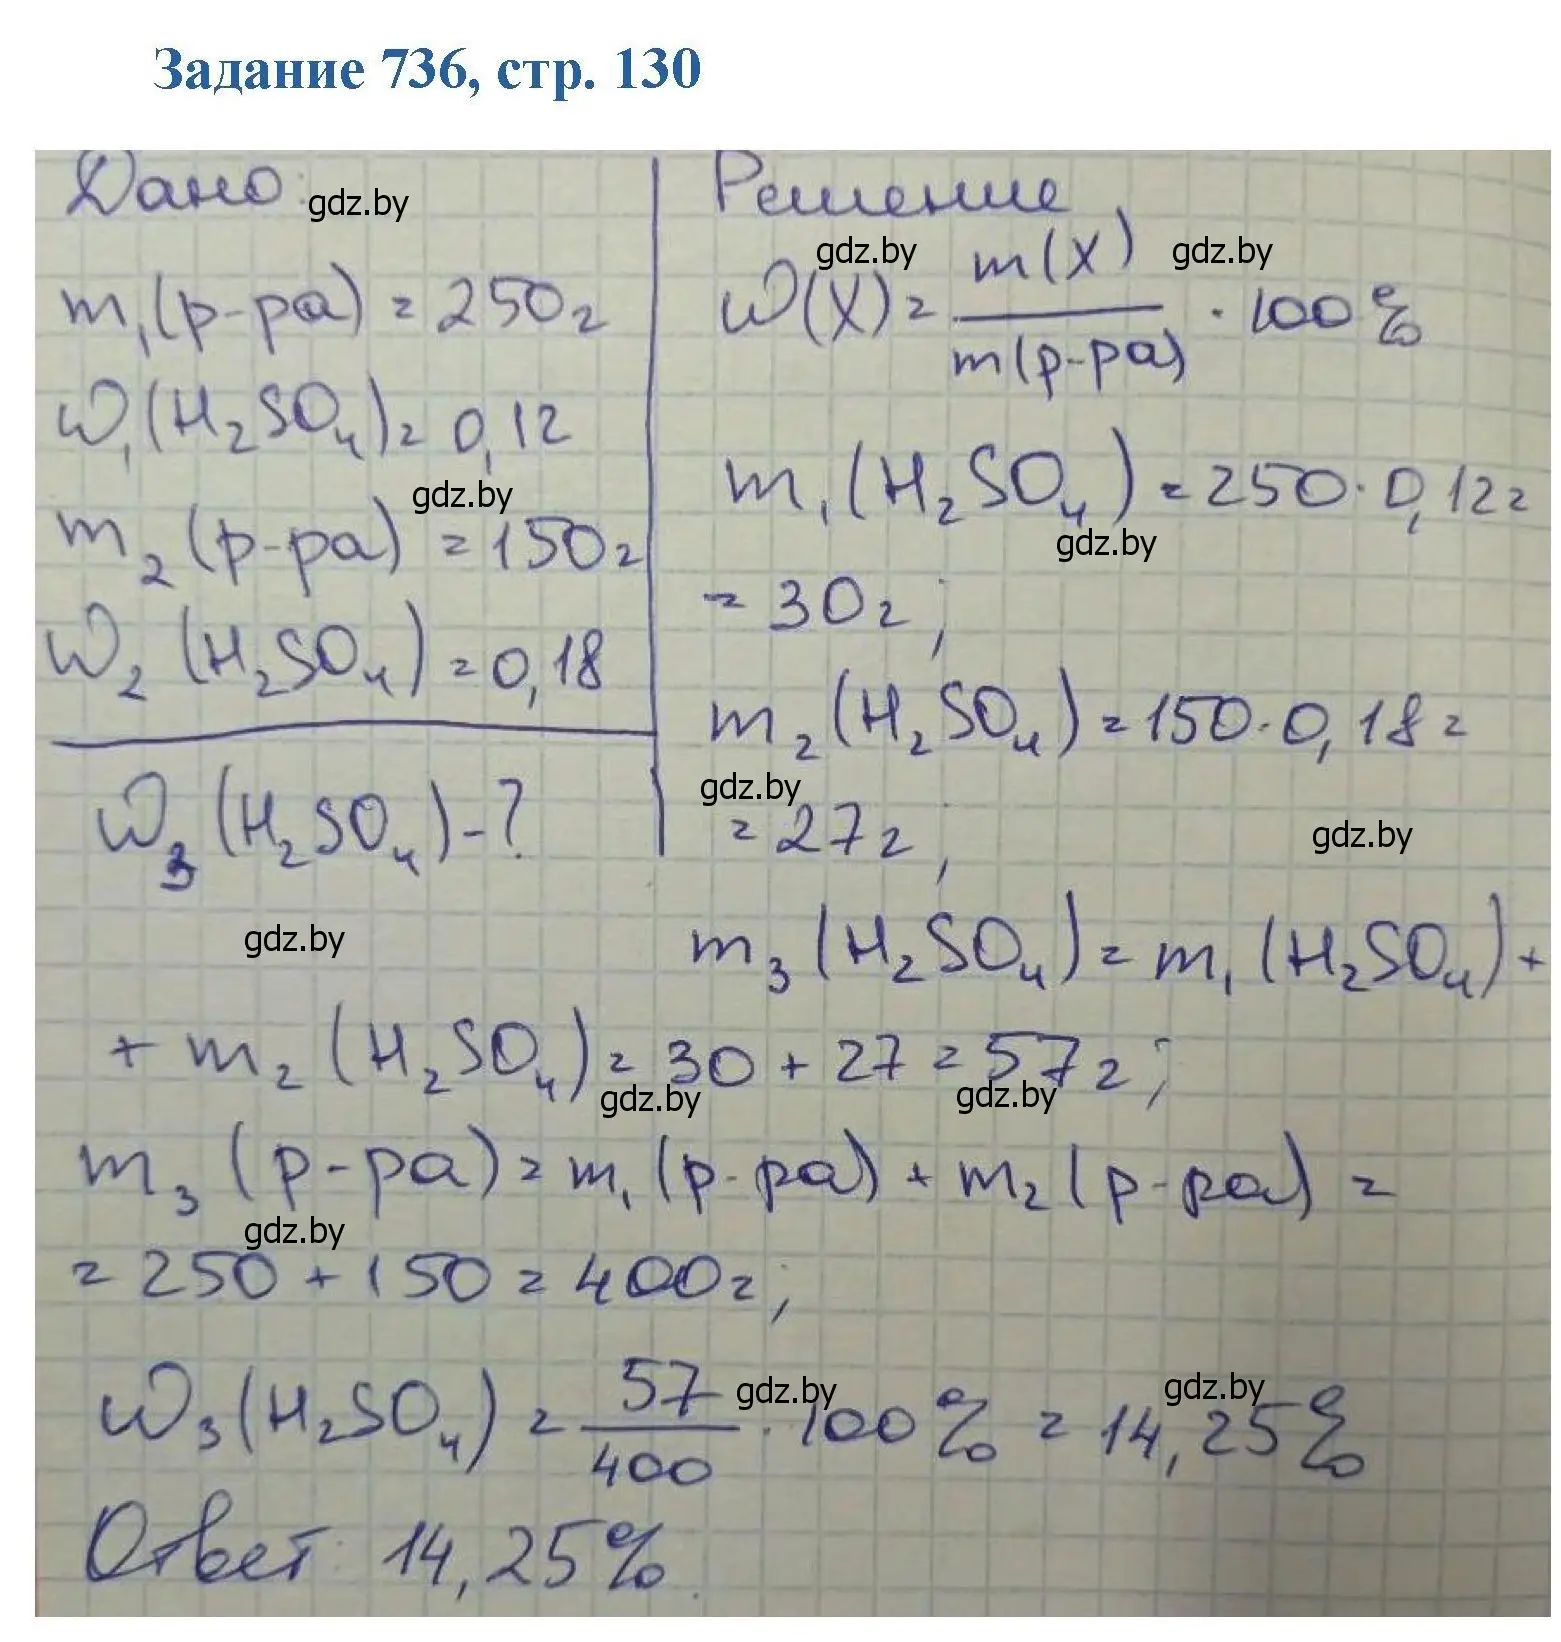 Задание 736, стр. 130
Дано:
gdz.by
m₁(р-ра) = 250г
w₁(H₂SO₄) = 0,12
gdz.by
m₂(р-ра) = 150г
w₂(H₂SO₄) = 0,18
w₃(H₂SO₄) - ?
gdz.by
Решение
gdz.by
gdz.by
w(X) = m(X) / m(р-ра) · 100%
m₁(H₂SO₄) = 250 · 0,12 =
gdz.by
= 30г;
m₂(H₂SO₄) = 150 · 0,18 =
gdz.by
= 27г;
gdz.by
m₃(H₂SO₄) = m₁(H₂SO₄) +
+ m₂(H₂SO₄) = 30 + 27 = 57г;
gdz.by
gdz.by
m₃(р-ра) = m₁(р-ра) + m₂(р-ра) =
gdz.by
= 250 + 150 = 400г;
w₃(H₂SO₄) = 57 / 400 · 100% = 14,25%
gdz.by
gdz.by
Ответ: 14,25%.